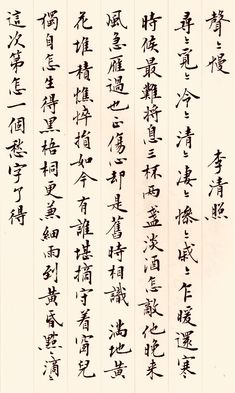 聲〻慢
李清照
尋〻覓〻冷〻清〻凄〻慘〻戚〻乍暖還寒
時候最難將息三杯兩盞淡酒怎敵他晚來
風急雁過也正傷心却是舊時相識 滿地黃
花堆積憔悴損如今有誰堪摘守着窗兒
獨自怎生得黑梧桐更兼細雨到黃昏點〻滴〻
這次第怎一個愁字了得